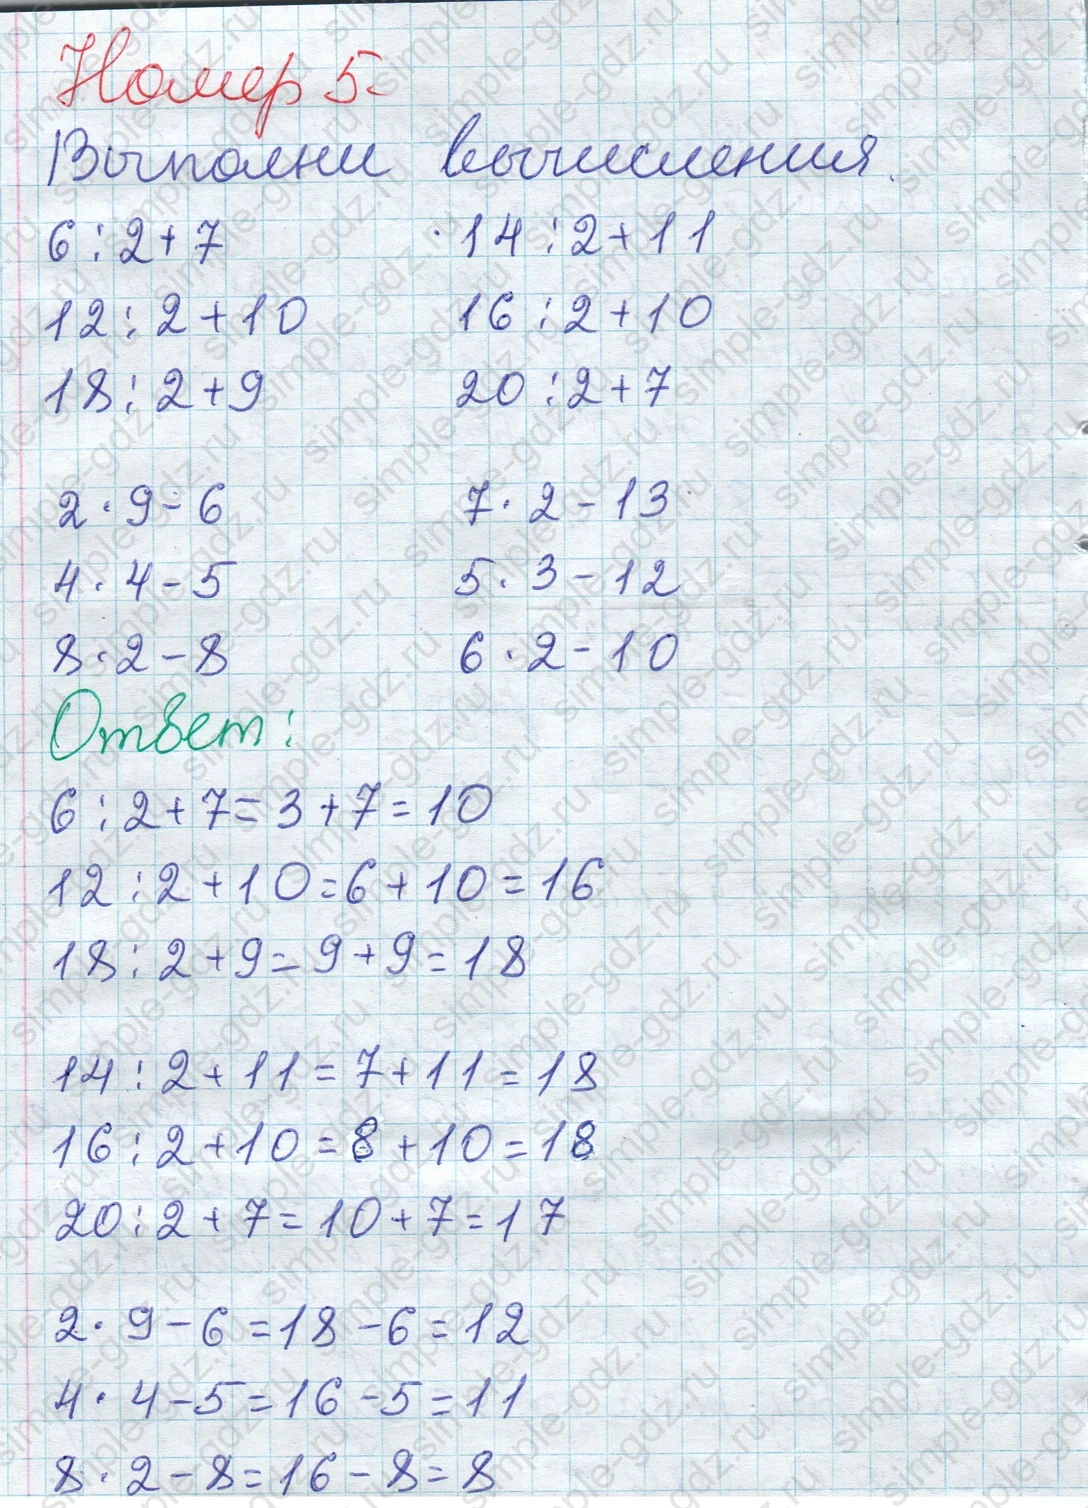 Номер 5.
Выполни вычисления.
6:2+7 14:2+11
12:2+10 16:2+10
18:2+9 20:2+7
2·9-6 7·2-13
4·4-5 5·3-12
8·2-8 6·2-10
Ответ:
6:2+7=3+7=10
12:2+10=6+10=16
18:2+9=9+9=18
14:2+11=7+11=18
16:2+10=8+10=18
20:2+7=10+7=17
2·9-6=18-6=12
4·4-5=16-5=11
8·2-8=16-8=8
simple-gdz.ru